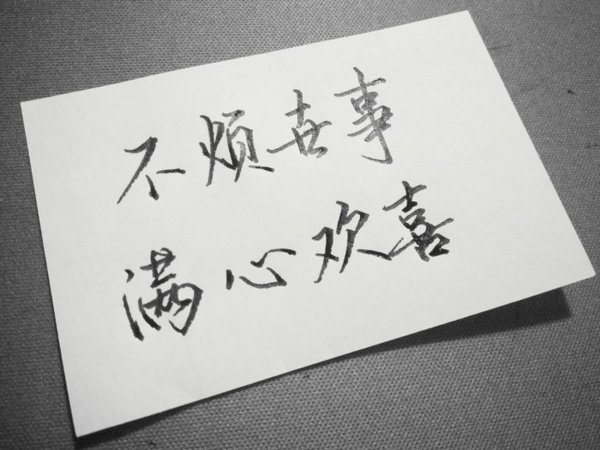 不烦世事
满心欢喜